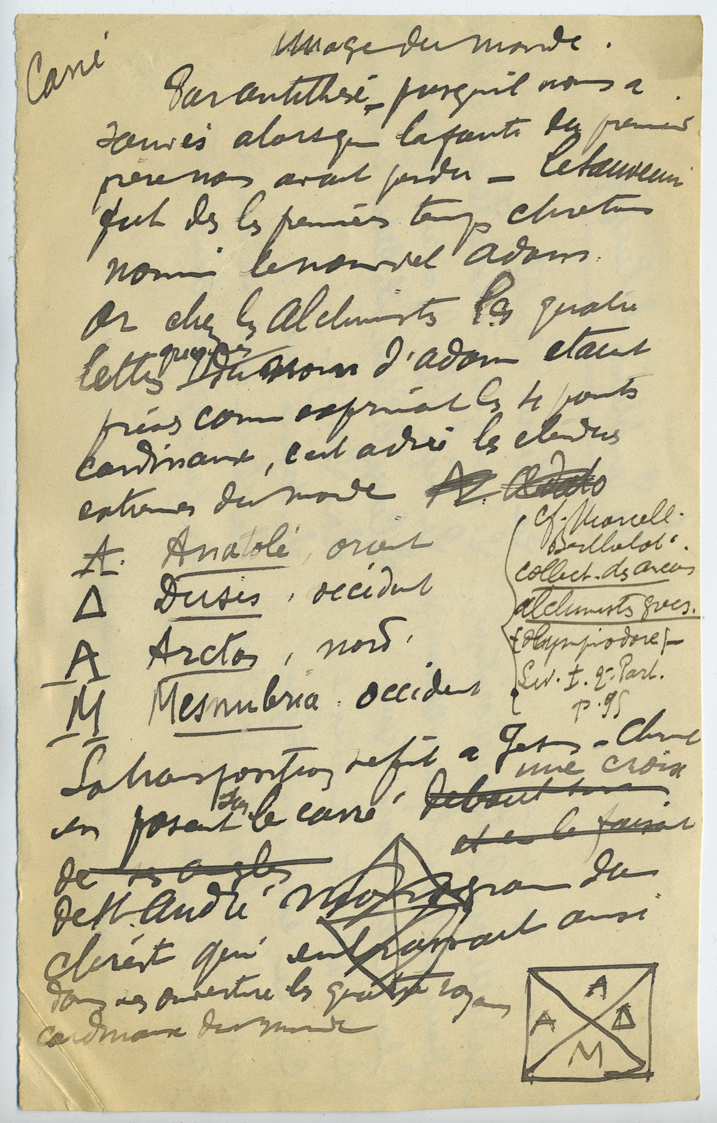 Carré
Image du monde.
Par antithèse, puisqu'il nous a
sauvés alors que la faute du premier
père nous avait perdu – le Sauveur
fut dès les premiers temps chretiens
nommé le nouvel adam.
Or chez les Alchimistes les quatre
lettres grecques du nom d'adam etaient
prises comme exprimant les 4 points
cardinaux, c'est a dire les etendues
extremes du monde
A. Anatolé, orient
Δ Dusis, occident
A Arctos, nord.
M Mesnubria. occident
cf. Marcell.
Berthelot.
collect. des anciens
alchimistes grecs.
(Olympiodore) –
Liv. I. 2e Part.
p. 95
La transposition se fit a Jesus-Christ
en posant sur le carré une croix
debout
et en le faisant
de ses angles
de St. André monogramme du
christ qui embrassait aussi
dans ses ouvertures les quatre
cardinaux du monde
A
A Δ
M